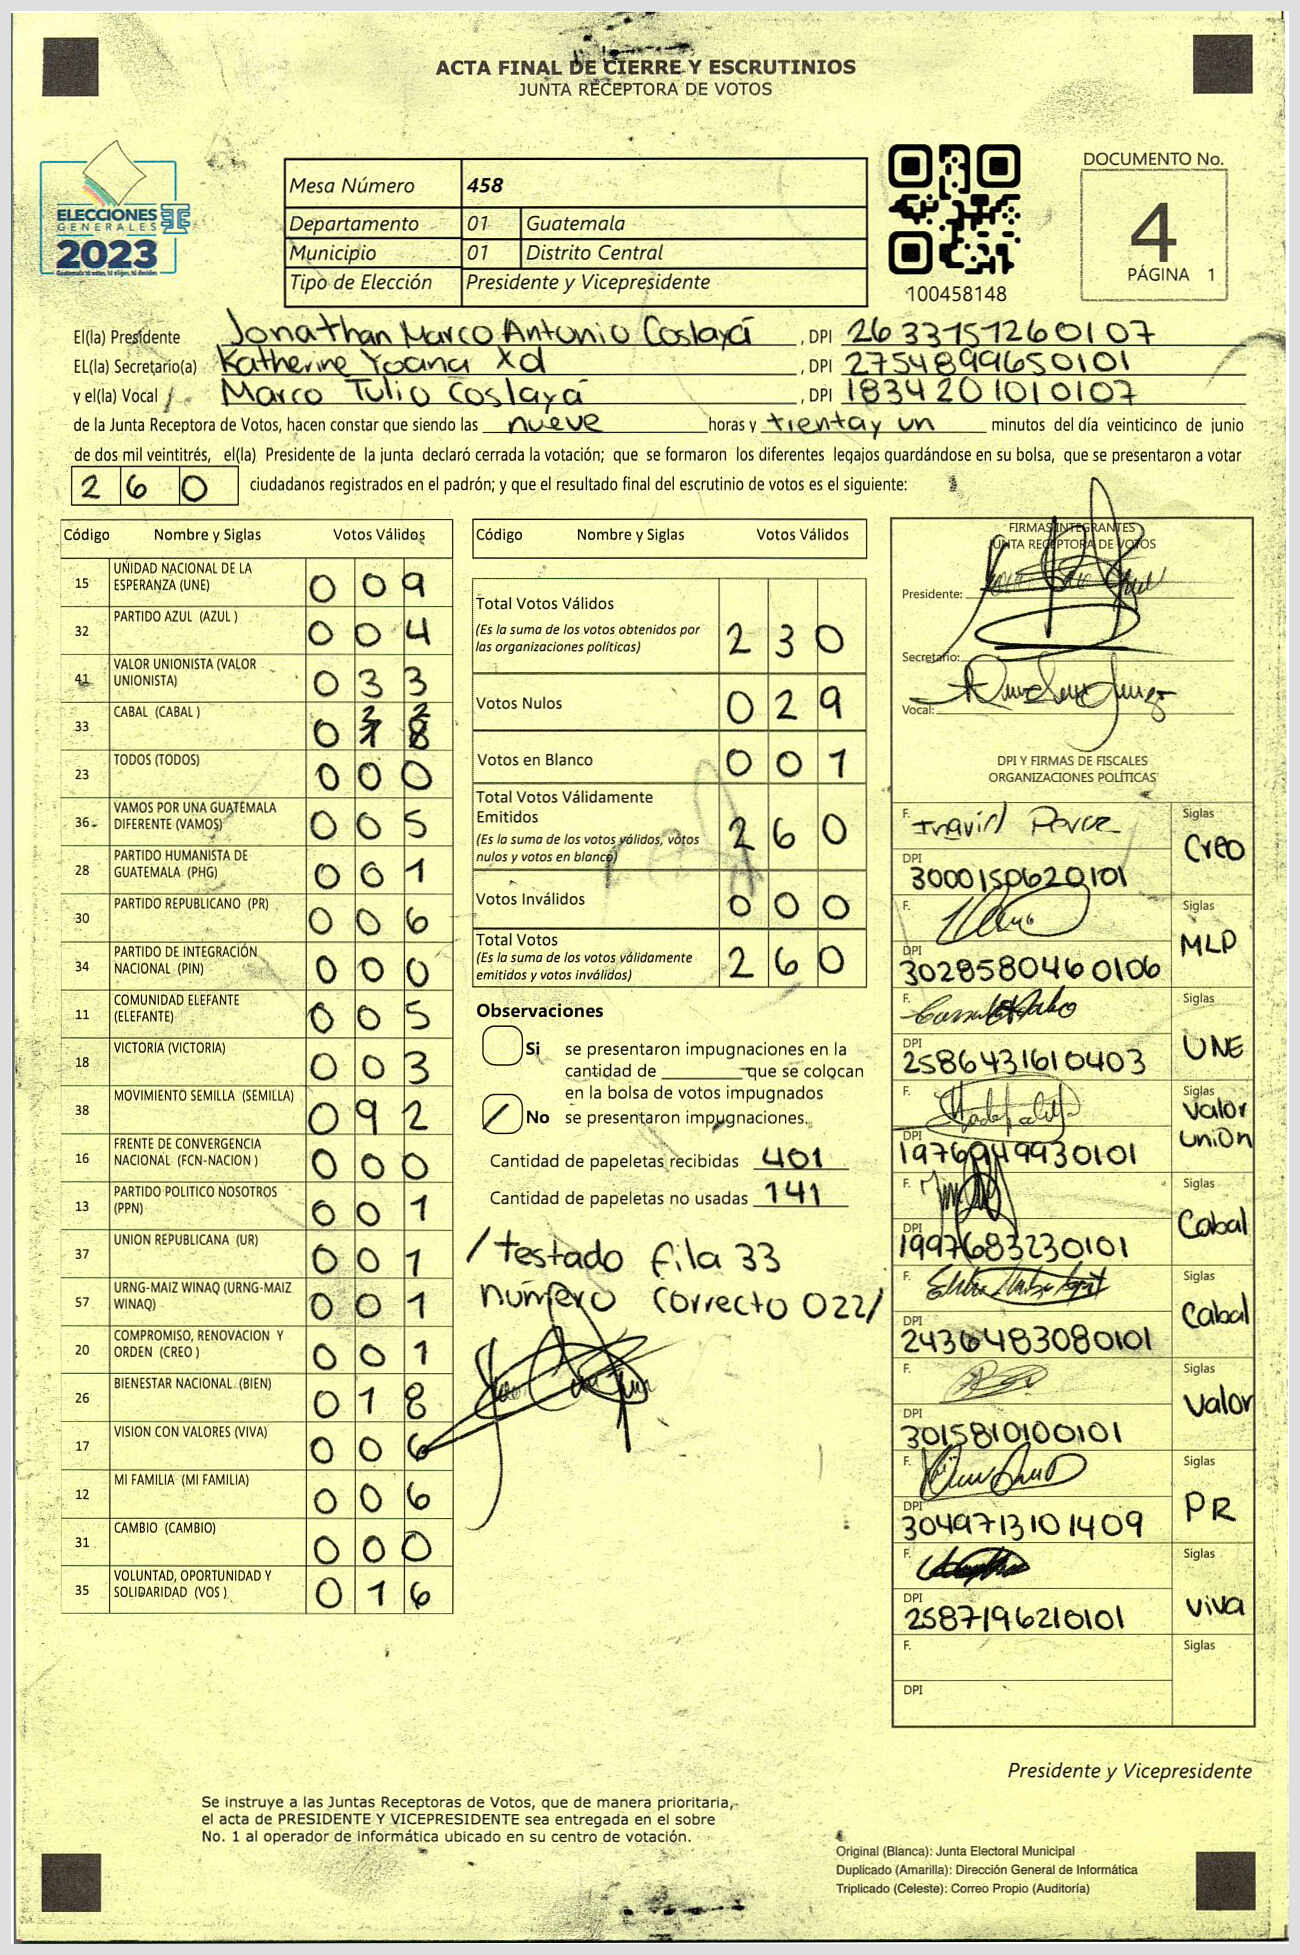 ACTA FINAL DE CIERRE Y ESCRUTINIOS
JUNTA RECEPTORA DE VOTOS
ELECCIONES
GENERALES
2023
Mesa Número 458
Departamento 01 Guatemala
Municipio 01 Distrito Central
Tipo de Elección Presidente y Vicepresidente
100458148
DOCUMENTO No.
4
PÁGINA 1
El(la) Presidente Jonathan Marco Antonio Coslayá , DPI 2633151260107
EL(la) Secretario(a) Katherine Yoana Xd , DPI 2754899650101
y el(la) Vocal Marco Tulio Coslayá , DPI 1834201010107
de la Junta Receptora de Votos, hacen constar que siendo las nueve horas y trientay un minutos del día veinticinco de junio
de dos mil veintitrés, el(la) Presidente de la junta declaró cerrada la votación; que se formaron los diferentes legajos guardándose en su bolsa, que se presentaron a votar
260 ciudadanos registrados en el padrón; y que el resultado final del escrutinio de votos es el siguiente:
Código Nombre y Siglas Votos Válidos
15 UNIDAD NACIONAL DE LA ESPERANZA (UNE) 009
32 PARTIDO AZUL (AZUL ) 004
41 VALOR UNIONISTA (VALOR UNIONISTA) 033
33 CABAL (CABAL ) 022
23 TODOS (TODOS) 000
36 VAMOS POR UNA GUATEMALA DIFERENTE (VAMOS) 005
28 PARTIDO HUMANISTA DE GUATEMALA (PHG) 001
30 PARTIDO REPUBLICANO (PR) 006
34 PARTIDO DE INTEGRACIÓN NACIONAL (PIN) 000
11 COMUNIDAD ELEFANTE (ELEFANTE) 005
18 VICTORIA (VICTORIA) 003
38 MOVIMIENTO SEMILLA (SEMILLA) 092
16 FRENTE DE CONVERGENCIA NACIONAL (FCN-NACION ) 000
13 PARTIDO POLITICO NOSOTROS (PPN) 001
37 UNION REPUBLICANA (UR) 001
57 URNG-MAIZ WINAQ (URNG-MAIZ WINAQ) 001
20 COMPROMISO, RENOVACION Y ORDEN (CREO ) 001
26 BIENESTAR NACIONAL (BIEN) 018
17 VISION CON VALORES (VIVA) 006
12 MI FAMILIA (MI FAMILIA) 006
31 CAMBIO (CAMBIO) 000
35 VOLUNTAD, OPORTUNIDAD Y SOLIDARIDAD (VOS ) 016
Código Nombre y Siglas Votos Válidos
Total Votos Válidos 230
(Es la suma de los votos obtenidos por
las organizaciones políticas)
Votos Nulos 029
Votos en Blanco 001
Total Votos Válidamente
Emitidos 260
(Es la suma de los votos válidos, votos
nulos y votos en blanco)
Votos Inválidos 000
Total Votos 260
(Es la suma de los votos válidamente
emitidos y votos inválidos)
Observaciones
Si se presentaron impugnaciones en la
cantidad de ________ que se colocan
en la bolsa de votos impugnados
No se presentaron impugnaciones.
Cantidad de papeletas recibidas 401
Cantidad de papeletas no usadas 141
/testado fila 33
número correcto 022/
FIRMAS INTEGRANTES
JUNTA RECEPTORA DE VOTOS
Presidente:
Secretario:
Vocal:
DPI Y FIRMAS DE FISCALES
ORGANIZACIONES POLÍTICAS
F. Siglas
Creo
DPI
3000150620101
F. Siglas
MLP
DPI
3028580460106
F. Siglas
UNE
DPI
2586431610403
F. Siglas
Valor
union
DPI
1976949930101
F. Siglas
Cabal
DPI
1997683230101
F. Siglas
Cabal
DPI
2436483080101
F. Siglas
Valor
DPI
3015810100101
F. Siglas
PR
DPI
3049713101409
F. Siglas
Viva
DPI
2587196210101
F. Siglas
DPI
Presidente y Vicepresidente
Se instruye a las Juntas Receptoras de Votos, que de manera prioritaria,
el acta de PRESIDENTE Y VICEPRESIDENTE sea entregada en el sobre
No. 1 al operador de informática ubicado en su centro de votación.
Original (Blanca): Junta Electoral Municipal
Duplicado (Amarilla): Dirección General de Informática
Triplicado (Celeste): Correo Propio (Auditoría)